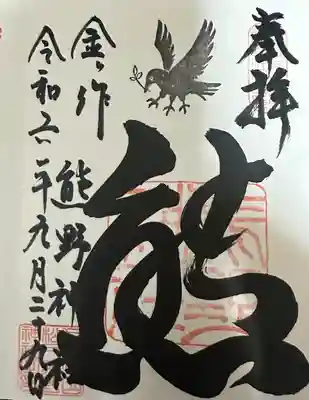 奉拝
熊
熊野神社
金作
令和六年九月二十九日